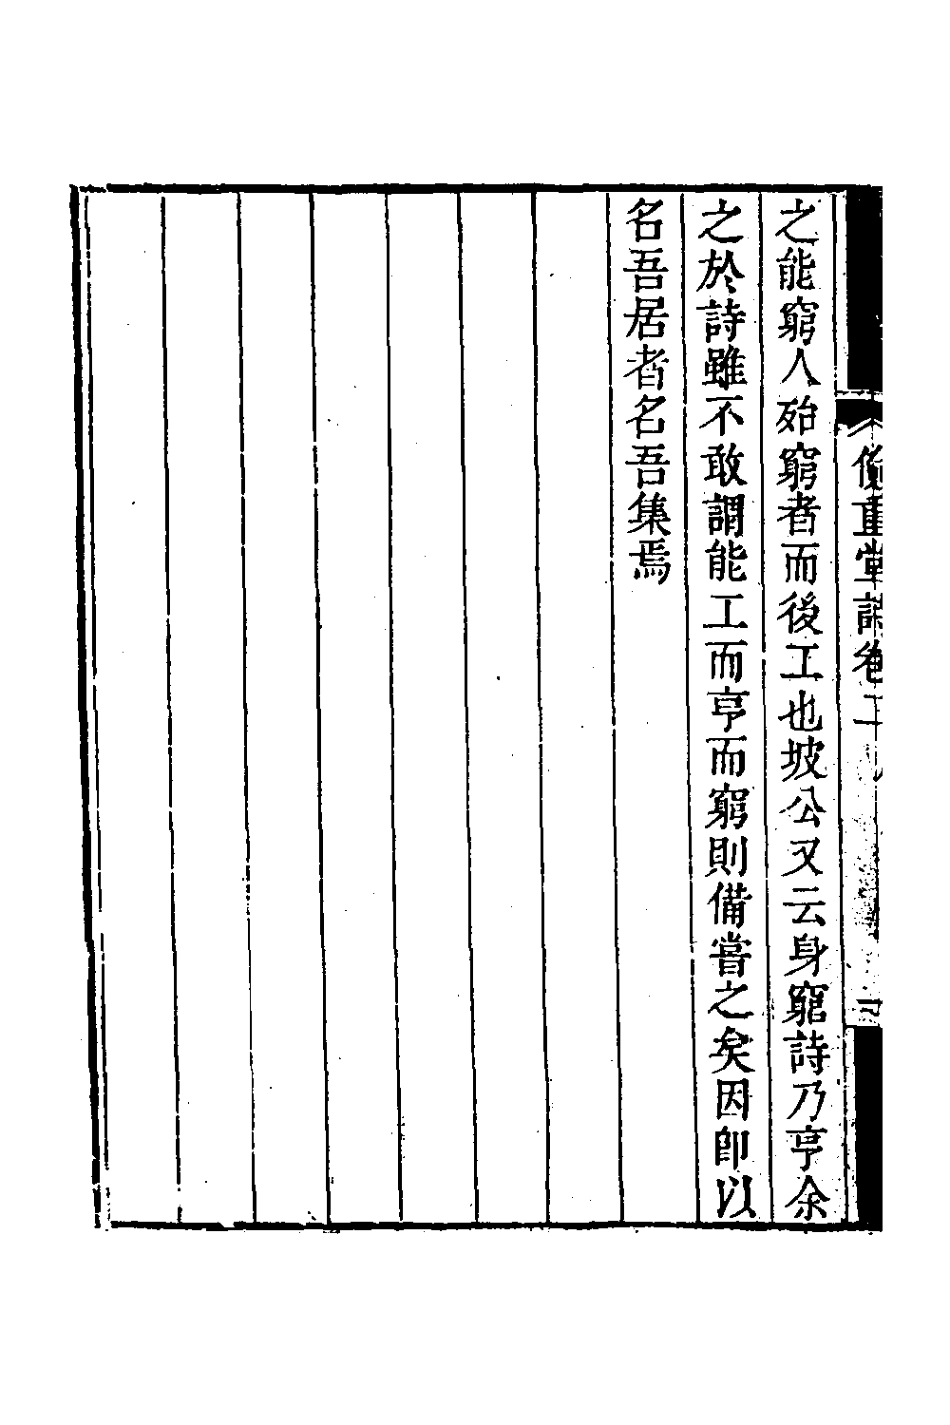 之能窮人殆窮者而後工也坡公又云身窮詩乃亨余
之於詩雖不敢謂能工而亨而窮則備嘗之矣因卽以
名吾居者名吾集焉
重堂詩卷二